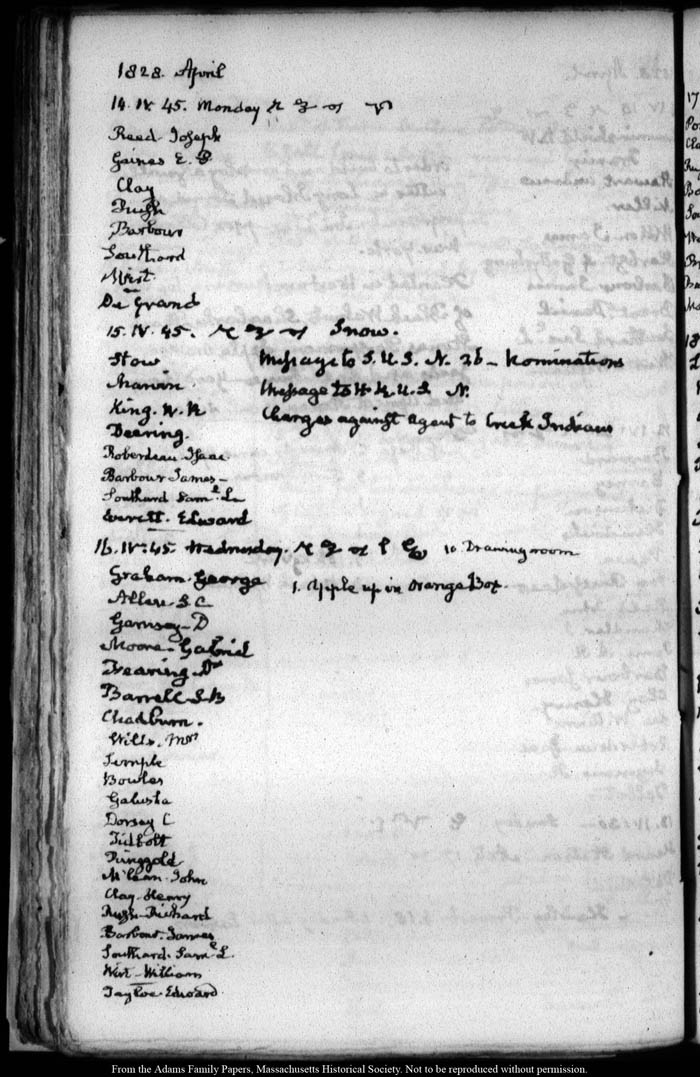 1828. April
14. IV. 45. Monday
Reed Joseph
Gaines E. P
Clay
Rush
Barbour
Southard
Wirt
De Grand
15. IV. 45. Snow.
Stow Message to S. U.S. N. 26 - Nominations
Marvin Message to H R U.S N.
King. W. R Charges against Agent to Creek Indians
Deering.
Roberdeau Isaac
Barbour James -
Southard Saml. L.
Everett. Edward
16. IV. 45. Wednesday. 10. Drawing room
Graham. George 1. Apple up in Orange Box.
Allen S C
Garnsey - D
Moore - Gabriel
Dearing - Dr
Barrell S B
Chadburn.
Wills. Mr
Temple
Bowles
Galusha
Dorsey C
Tidbott
Ringgold
McLean. John
Clay. Henry
Rush. Richard
Barbour. James
Southard. Saml. L.
Wirt - William
Tayloe. Edward
17
Cla
Ba
Sou
18
From the Adams Family Papers, Massachusetts Historical Society. Not to be reproduced without permission.